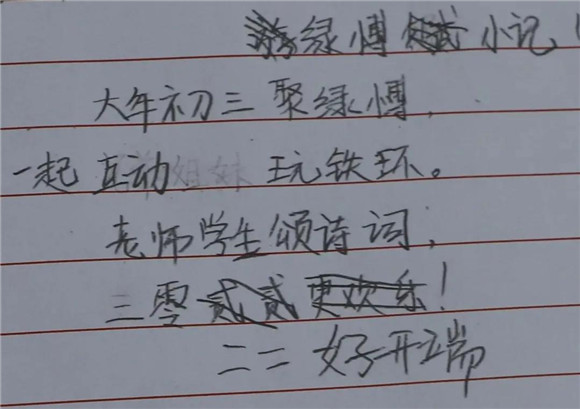 绿博小记
大年初三聚绿博，
一起互动玩铁环。
老师学生颂诗词，
三零贰贰更欢乐！
二二好开端